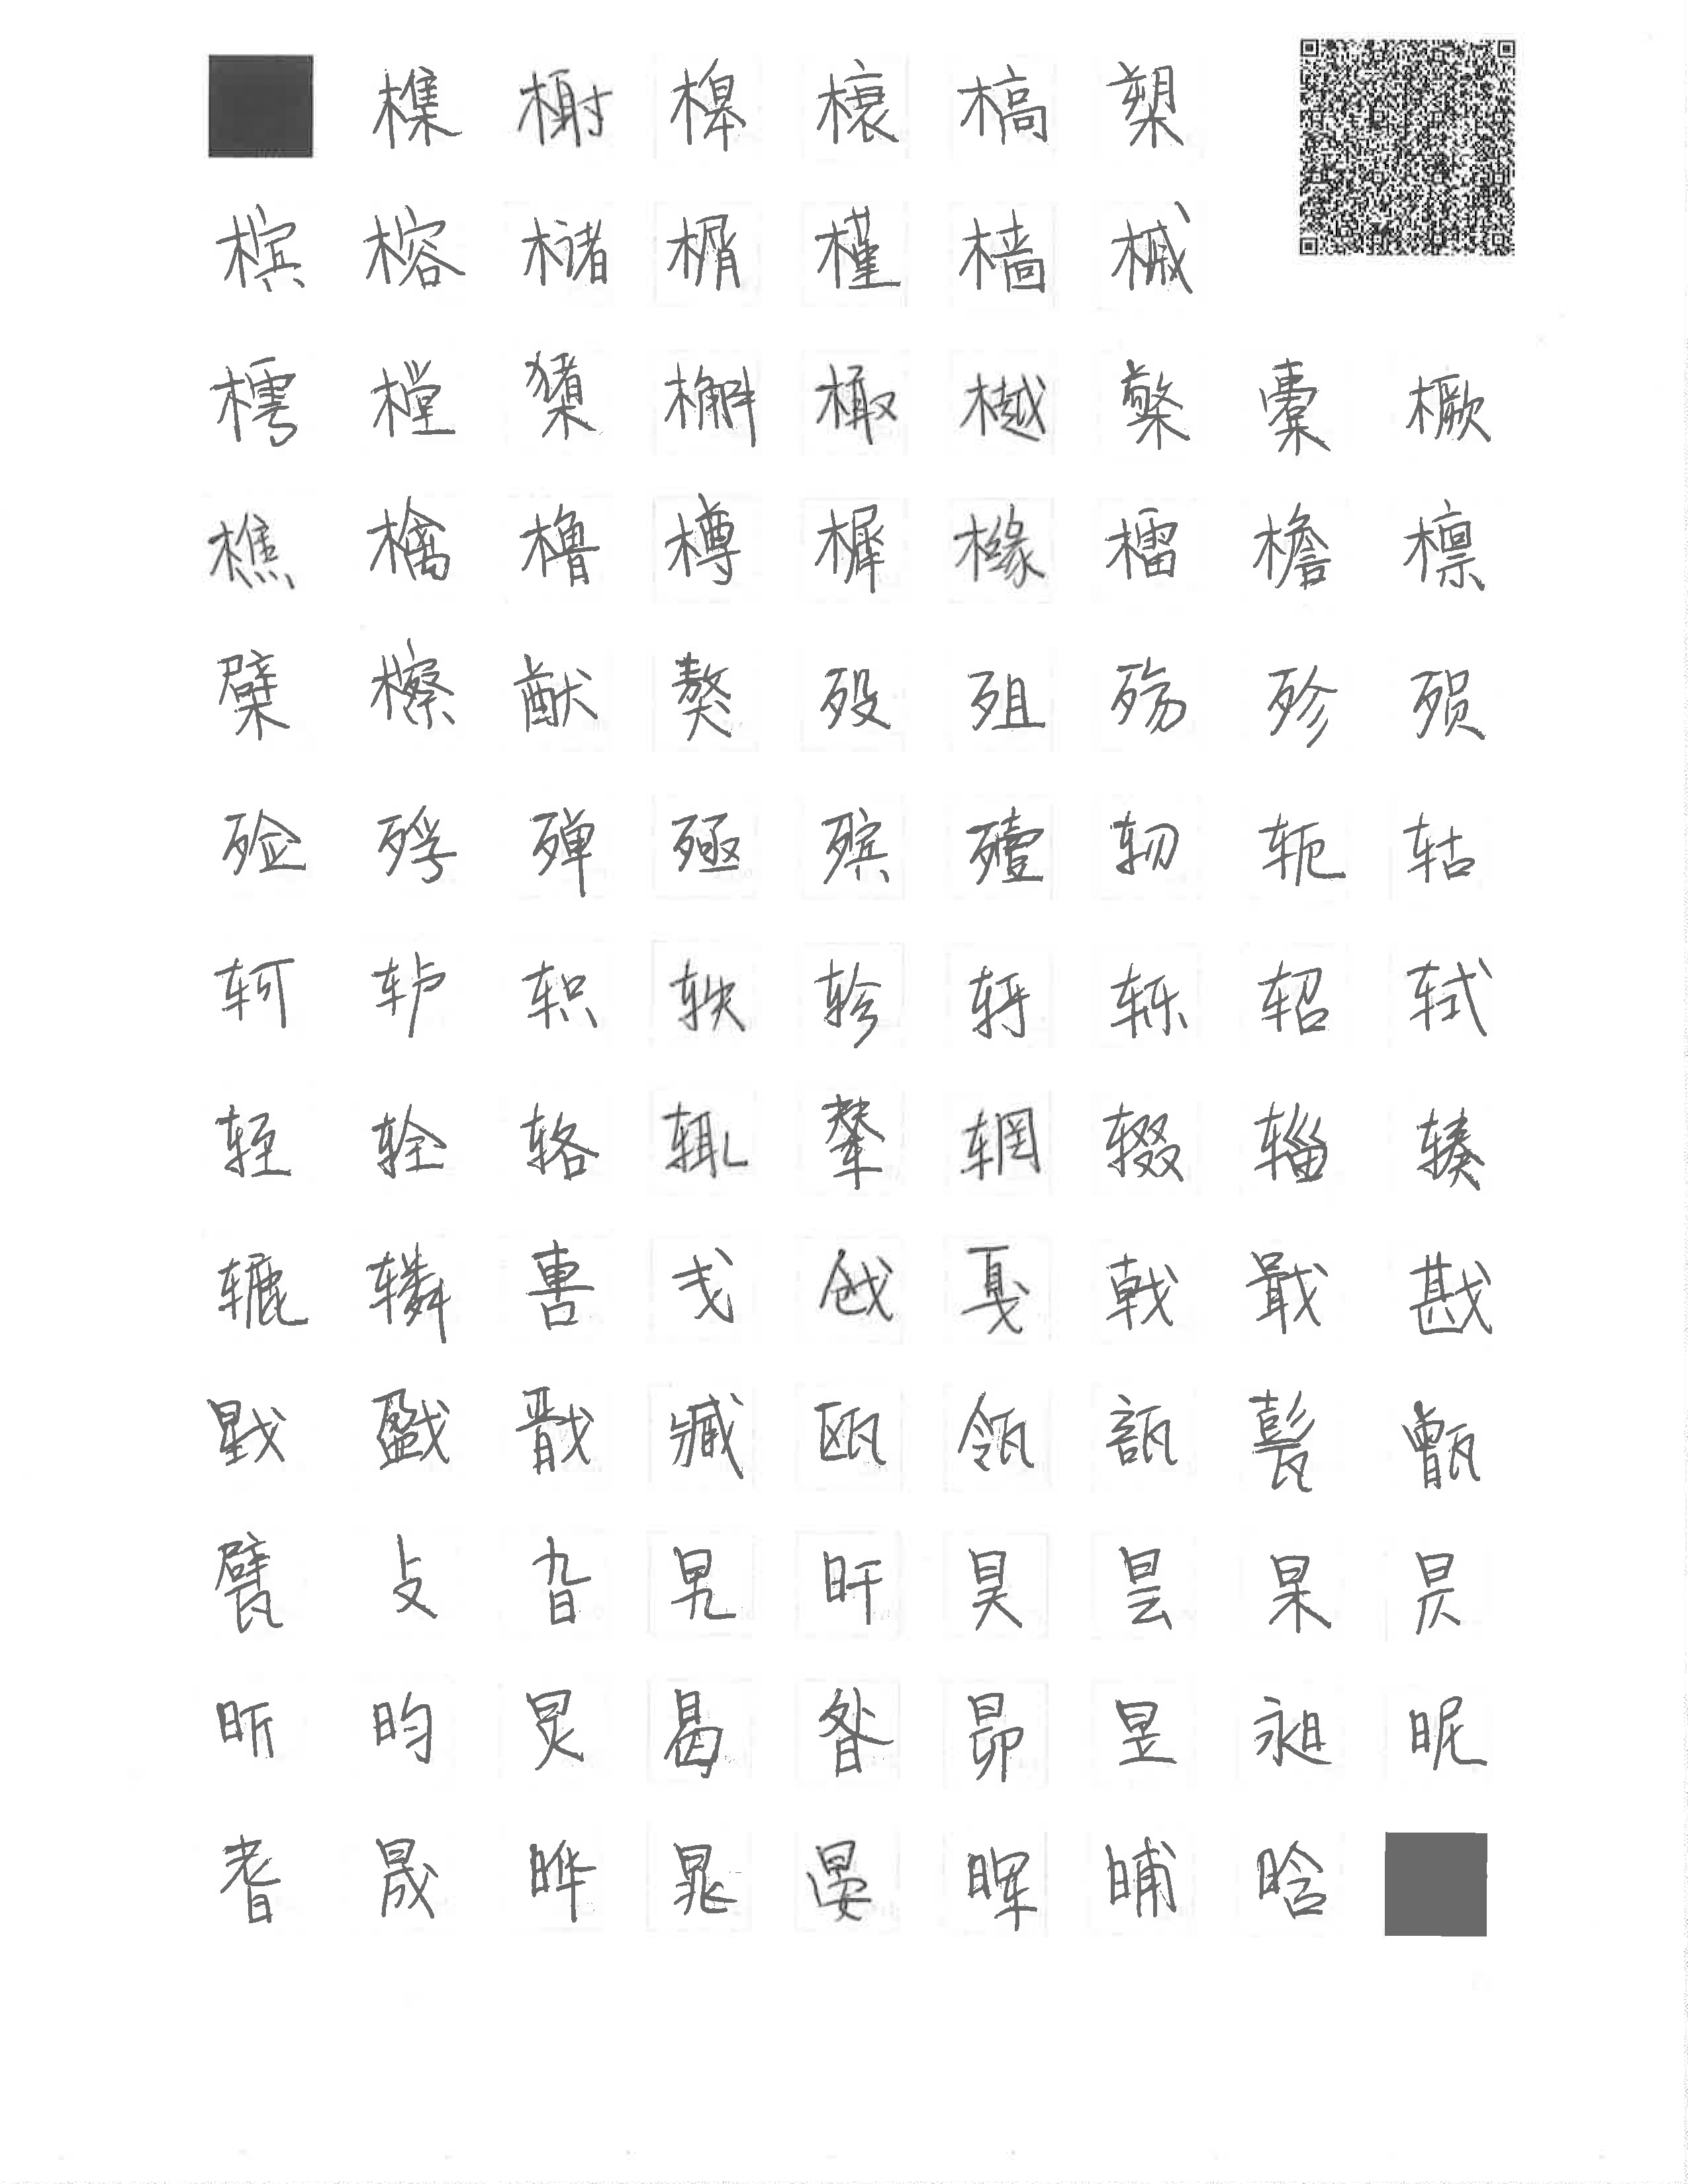 榫榭槔榱槁槊
槟榕槠榍槿樯槭
樗樘橥槲橄樾檠橐橛
樵檎橹樽樨橼檑檐檩
檗檫猷獒殁殂殇殄殒
殓殍殚殛殡殪轫轭轱
轲轳轵轶轸轷轹轺轼
轾辁辂辄辇辋辍辎辏
辘辚軎戋戗戛戟戢戡
戥戤戬臧瓯瓴瓿甏甑
甓攴旮旯旰昊昙杲昃
昕昀炅曷昝昴昱昶昵
耆晟晔晁晏晖晡晗